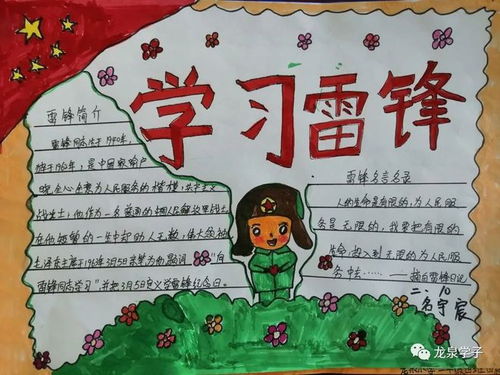 学习雷锋
雷锋简介
雷锋同志出生于1940年,
牺牲于1962年,是中国家喻户
晓全心全意为人民服务的楷模,共产主义
战士,他作为一名普通的中国人民解放军战士
在他短暂的一生中却助人无数,伟大领袖
毛泽东主席于1963年3月5日亲笔为他题词"向
雷锋同志学习"并把3月5日定义学雷锋纪念日。
雷锋名言名录
人的生命是有限的,为人民服
务是无限的,我要把有限的
生命,投入到无限的为人民服
务中去……——摘自雷锋日记
二、10
名守宸
龙泉学子